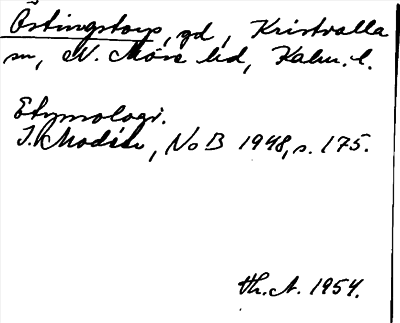 Östingstorp, gd, Kristvalla
sn, N. Möre hd, Kalm. l.
Etymologi.
I. Modéer, NoB 1948, s. 175.
Th. A. 1954.